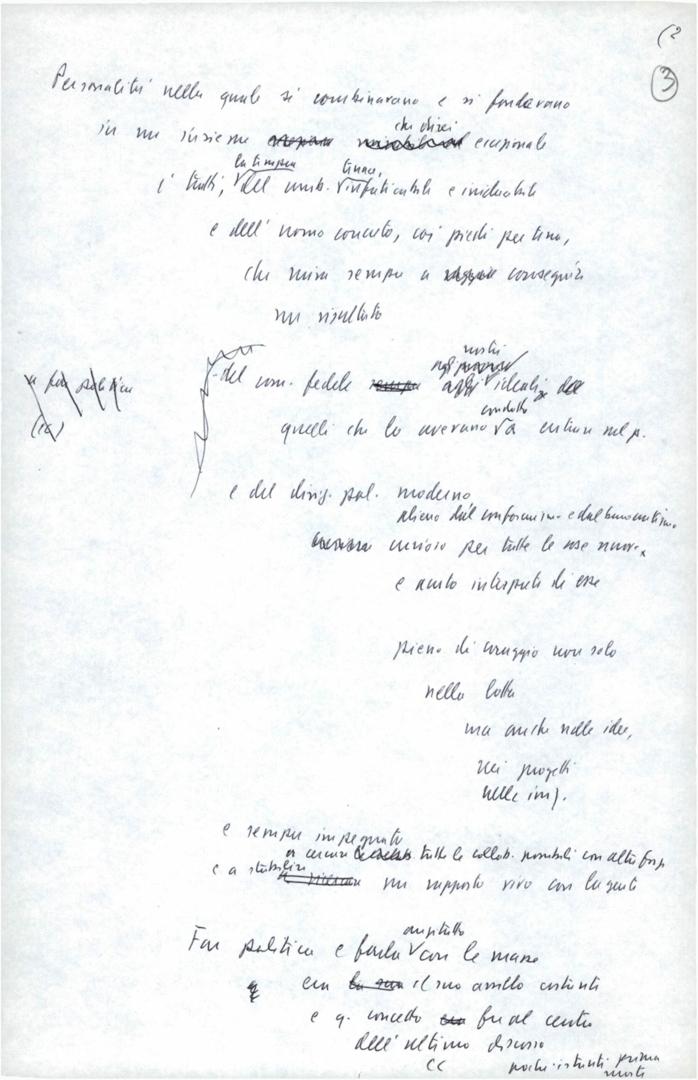 (2
3
Personalità nella quale si combinavano e si fondevano
che direi
in un insieme eccezionale
la tempra tenace,
i tratti, del comb. infaticabile e
e dell' uomo concreto, coi piedi per terra,
che mira sempre a conseguire
un risultato
nostri
- del com. fedele agli ideali
condotto
quelli che lo avevano a entrare nel p.
e del dirig. pol. moderno
alieno dal conformismo e dal burocratismo
curioso per tutte le cose nuove
e acuto interprete di esse
pieno di coraggio non solo
nella lotta
ma anche nelle idee,
nei progetti
nelle iniz.
e sempre impegnato
a cercare tutte le collab. possibili con altre forze
e a stabilire un rapporto vivo con la gente
anzitutto
Far politica e farla con le masse
era il suo assillo costante
e q. concetto fu al centro
dell' ultimo discorso
CC pochi istanti prima
morte